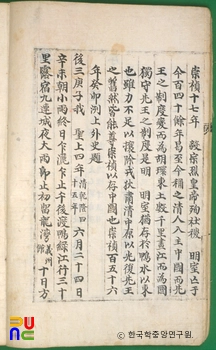 崇禎十七年 毅宗烈皇帝殉社稷 明室亡于
今百四十餘年曷至今稱之清人入主中國而先
王之制度變而為胡環東土數千里畫江而為國
獨守先王之制度是明 明室猶存於鴨水以東
也雖力不足以攘除戎狄肅清中原以光復先王
之舊然皆能尊崇禎以存中國也崇禎百五十六
年癸卯洌上外史題
後三庚子我 聖上四年 清乾隆四十五年 六月二十四日
辛未朝小雨終日乍灑乍止午後渡鴨綠江行三十
里露宿九連城夜大雨即止初留龍灣 義州館 十日方
© 한국학중앙연구원